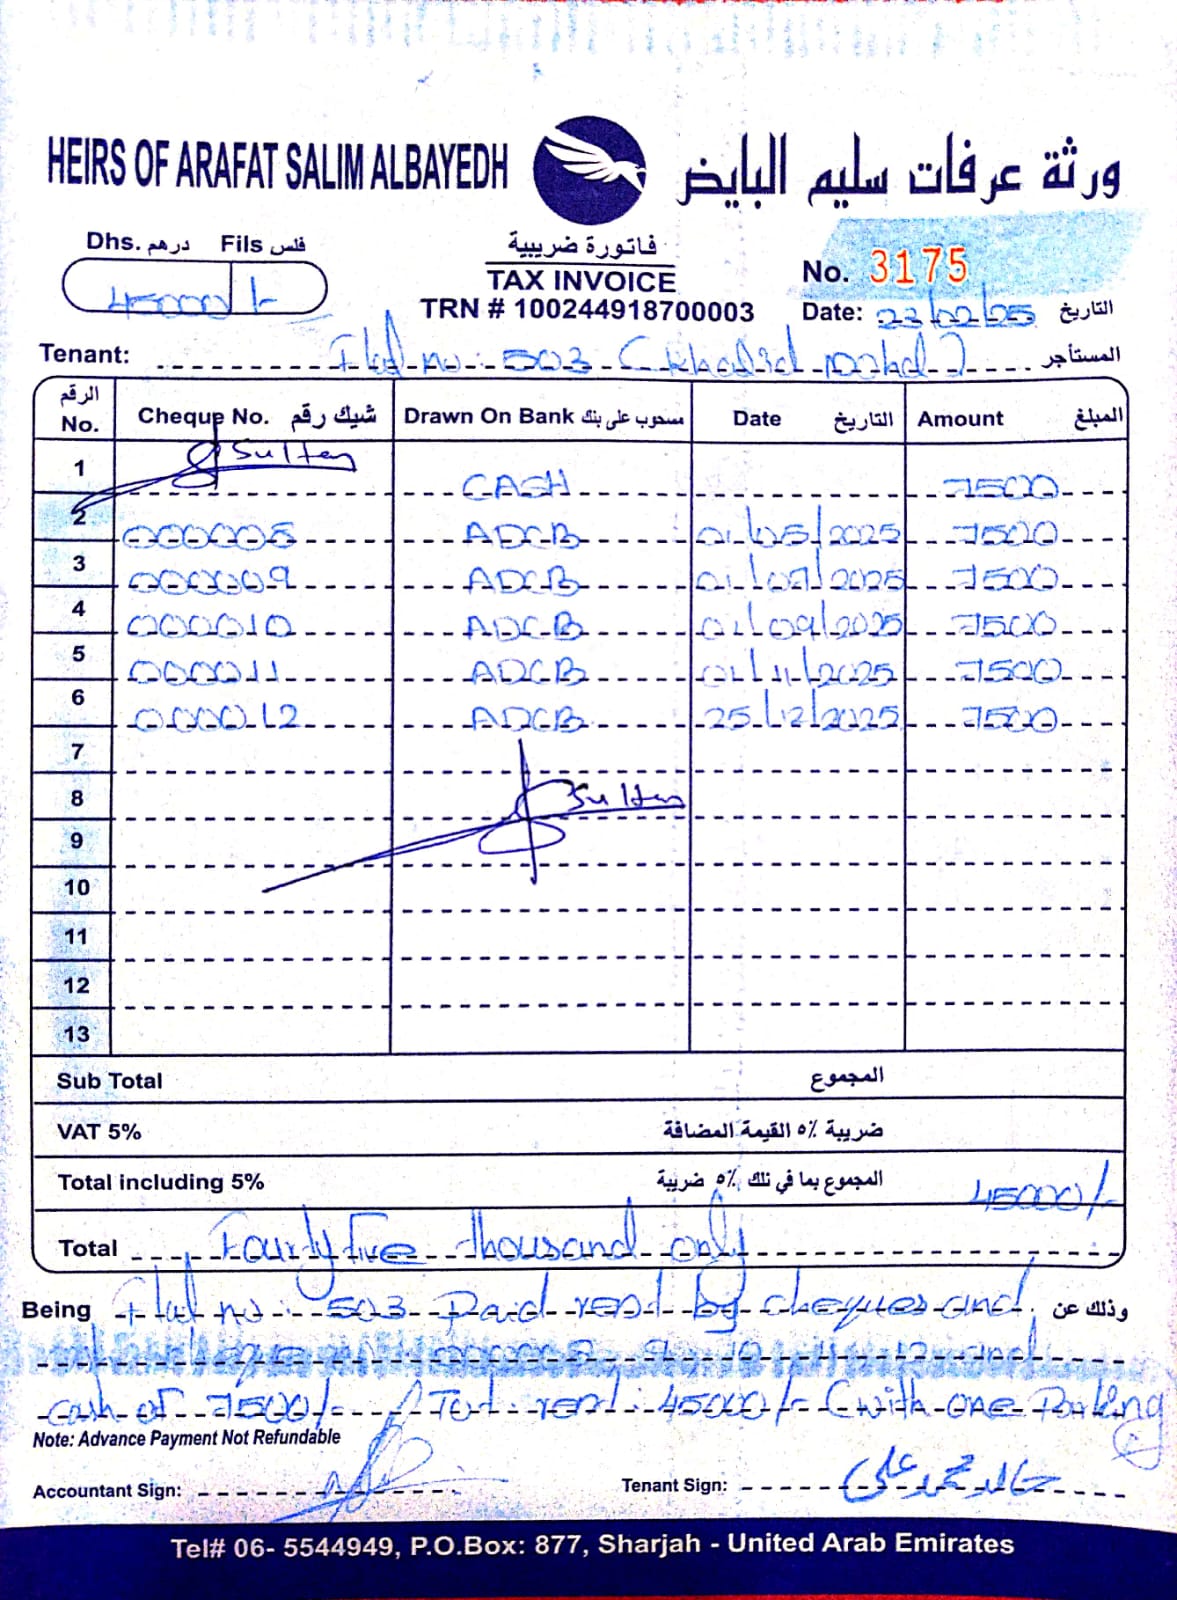 HEIRS OF ARAFAT SALIM ALBAYEDH ورثة عرفات سليم البايض
Dhs. درهم Fils فلس
45000 /-
فاتورة ضريبية
TAX INVOICE
TRN # 100244918700003
No. 3175
Date: 23/02/25 التاريخ
Tenant: Flat no: 503 (Khalid المستأجر
الرقم No. Cheque No. شيك رقم Drawn On Bank مسحوب على بنك Date التاريخ Amount المبلغ
Sultan
1 CASH 7500
2 000008 ADCB 01/05/2025 7500
3 000009 ADCB 01/07/2025 7500
4 000010 ADCB 01/09/2025 7500
5 000011 ADCB 01/11/2025 7500
6 000012 ADCB 25/12/2025 7500
7
8 Sultan
9
10
11
12
13
Sub Total المجموع
VAT 5% ضريبة ٥٪ القيمة المضافة
Total including 5% المجموع بما في ذلك ٥٪ ضريبة 45000/-
Total Fourty Five thousand only
Being Flat no: 503 Paid rent by cheques and وذلك عن
9 10 11 12 and
cash of 7500/- Tot. rent: 45000/- (with one Parking
Note: Advance Payment Not Refundable
Accountant Sign: Tenant Sign: خالد محمد علي
Tel# 06- 5544949, P.O.Box: 877, Sharjah - United Arab Emirates